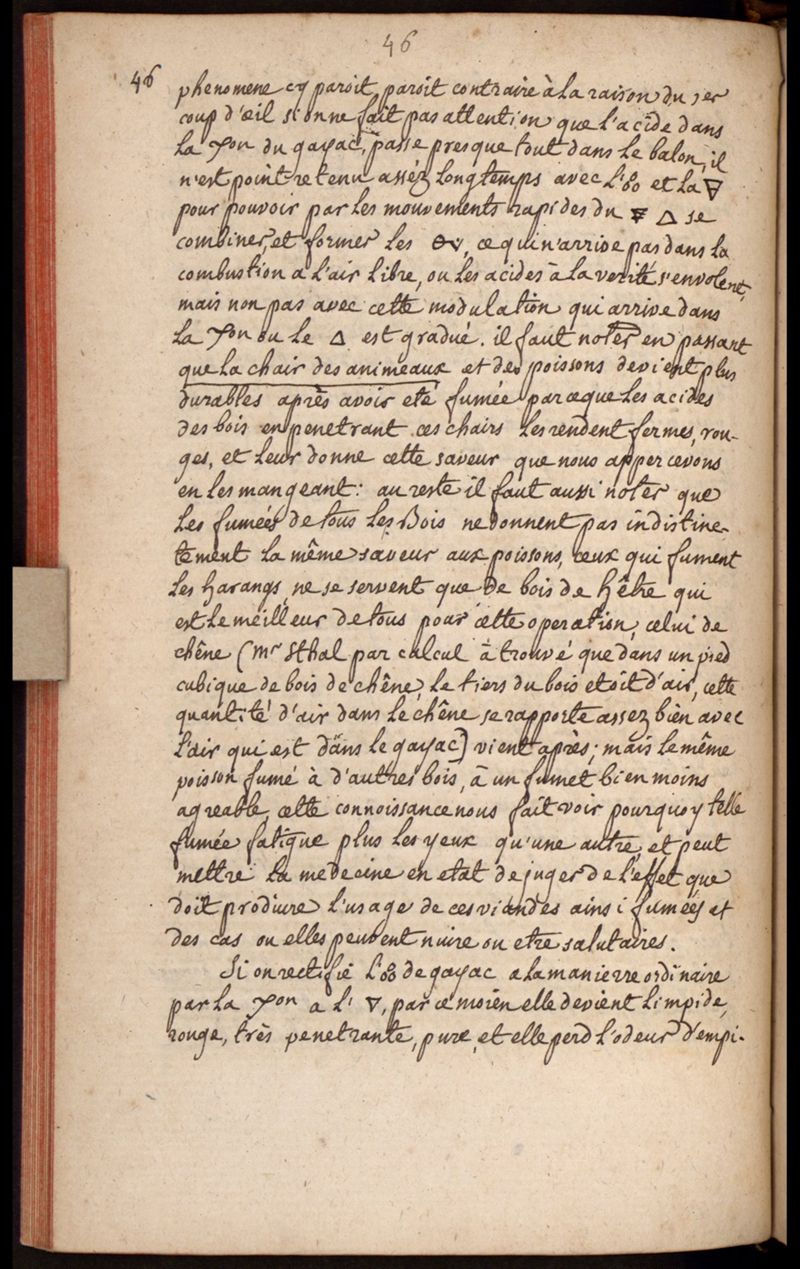 46
46
phenomene cy paroit paroit contraire à la raison du 1er
coup d'œil si on ne fait pas attention que l'acide dans
la ♈on du gayac, passe presque tout dans le balon, il
n'est point retenu asséz longtemps avec l' et la 🜄
pour pouvoir par les mouvements rapides du 🜃 🜂 se
combiner, et former les , ce qui n'arrive pas dans la
combustion a l'air libre, ou les acides à la verité s'envolent,
mais non pas avec cette modulation qui arrive dans
la ♈on ou le 🜂 est gradué. il faut noter en passant
que la chair des animeaux et des poissons devient plus
durables après avoir eté fumée parceque les acides
des bois en penetrant ces chairs les rendent fermes, rou-
ges, et leur donne cette saveur que nous appercevons
en les mangeant: au reste il faut aussi noter que
les fumées de tous les Bois ne donnent pas indistinc-
tement la même saveur aux poissons, ceux qui fument
les harangs, ne se servent que de bois de hêtre qui
est le meilleur de tous pour cette operation, celui de
chêne (Mr Sthal par calcul à trouvé que dans un pied
cubique de bois de chêne, le tiers du bois etoit d'air, cette
quantité d'air dans le chêne se rapporte assez bien avec
l'air qui est dans le gayac) vient après; mais le même
poisson fumé à d'autres bois, à un fumet bien moins
agreable, cette connoissance nous fait voir pourquoy telle
fumée fatigue plus les yeux qu'une autre, et peut
mettre la medecine en etat de juger de l'effet que
doit produire l'usage de ces viandes ainsi fumeés et
des cas ou elles peuvent nuire ou etre salutaires.
Si on rectifie l' de gayac a la manierre ordinaire
par la ♈on a l' 🜄, par ce moien elle devient limpide,
rouge, très penetrante, pure, et elle perd l'odeur d'empi-